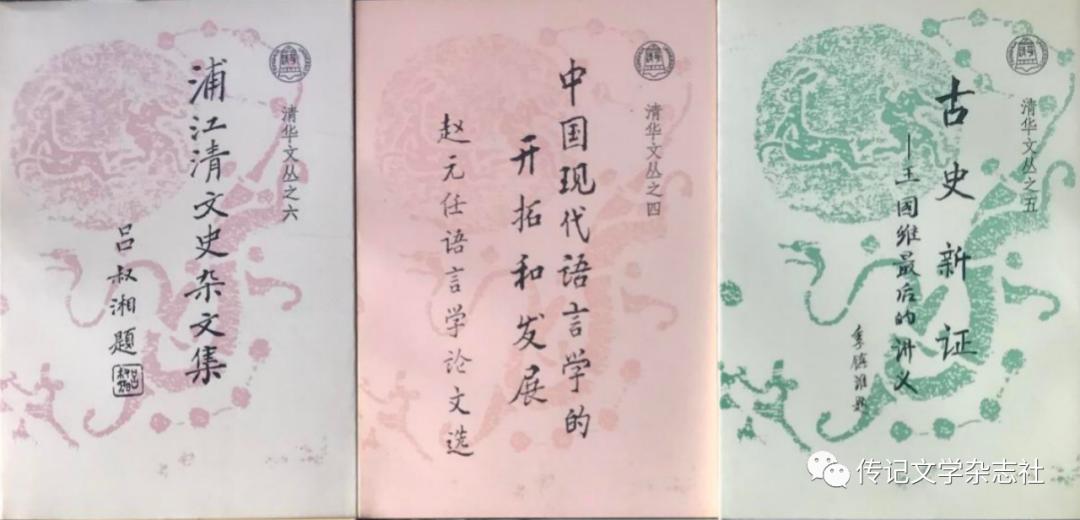 清华文丛之六
浦江清文史杂文集
吕叔湘题
清华文丛之四
中国现代语言学的
开拓和发展
赵元任语言学论文选
清华文丛之五
古史新证
—王国维最后的讲义
季镇淮题
传记文学杂志社